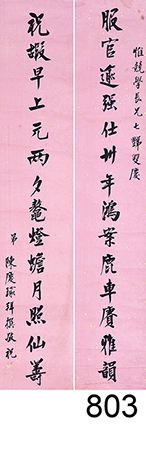 惟競學長兄七豑雙慶
服官逾强仕卅年鴻案鹿車賡雅韻
祝嘏早上元兩夕鰲燈蟾月照仙籌
弟 陳慶拜撰敬祝
803